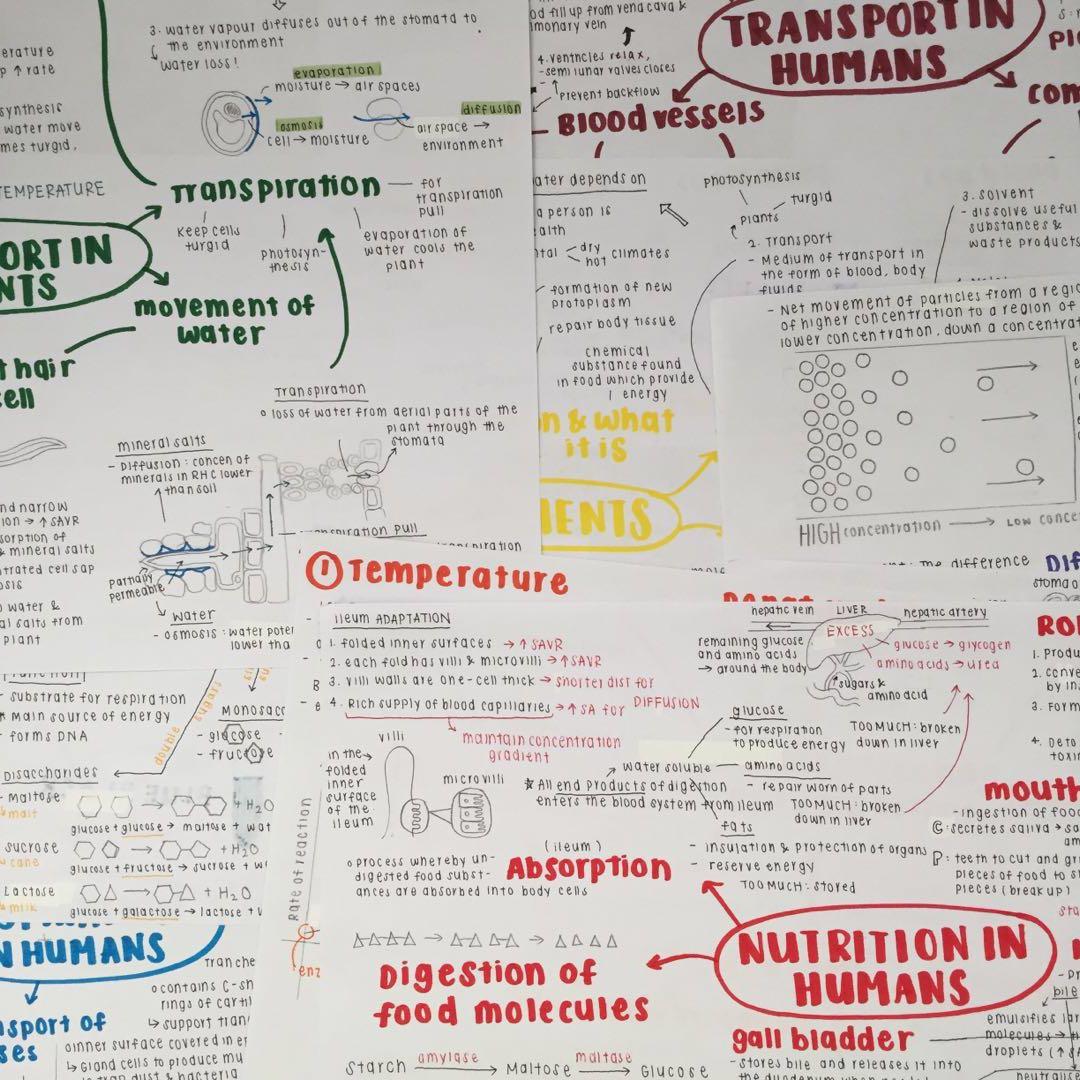 erature
p ↑ rate
synthesis
water move
mes turgid.
TEMPERATURE
3. water vapour diffuses out of the stomata to
the environment
↳ water loss!
evaporation
moisture → air spaces
osmosis
cell → moisture
diffusion
air space →
environment
Transpiration
Keep cells
turgid
photosyn-
thesis
evaporation of
water cools the
plant
for
transpiration
pull
ORT IN
NTS
movement of
water
t hair
cell
Transpiration
o loss of water from aerial parts of the
plant through the
stomata
mineral salts
- Diffusion: concen of
minerals in RHC lower
than soil
nd narrow
ion → ↑ SAVR
sorption of
& mineral salts
trated cell sap
osis
water &
al salts from
plant
Partially
permeable
water
- osmosis: water poten
lower tha
od fill up from vena cava &
lmonary vein
4. ventricles relax,
- semi lunar valves closes
↑ Prevent backflow
TRANSPORT IN
HUMANS
Blood vessels
com
ater depends on
a person is
alth
ntal
dry
hot
climates
formation of new
protoplasm
repair body tissue
chemical
substance found
in food which provide
energy
photosynthesis
plants
turgid
2. Transport
- Medium of transport in
the form of blood, body
fluids
3. Solvent
- dissolve useful
substances &
waste products
n & what
it is
IENTS
- Net movement of particles from a regio
of higher concentration to a region of
lower concentration, down a concentrat
HIGH concentration → Low conce
the difference
Dif
stoma
① Temperature
Ileum ADAPTATION
1. folded inner surfaces → ↑ SAVR
2. each fold has villi & microvilli → ↑ SAVR
3. villi walls are one-cell thick → shorter dist for
4. Rich supply of blood capillaries → ↑ SA for DIFFUSION
maintain concentration
gradient
villi
in the
folded
inner
surface
of the
ileum
microvilli
hepatic vein
LIVER
hepatic artery
EXCESS
remaining glucose
and amino acids
→ around the body
sugars &
amino acid
glucose → glycogen
amino acids → urea
glucose
- for respiration
to produce energy
TOO MUCH: broken
down in liver
water soluble
amino acids
- repair worn of parts
TOO MUCH: broken
down in liver
★ All end products of digestion
enters the blood system from ileum
fats
- insulation & protection of organs
- reserve energy
TOO MUCH: stored
(ileum)
Absorption
o process whereby un-
digested food subst-
ances are absorbed into body cells
Digestion of
food molecules
Starch amylase → Maltose maltase → Glucose
NUTRITION IN
HUMANS
gall bladder
- stores bile and releases it into
RO
1. Produ
2. conve
by in
3. Form
4. Deto
toxi
mouth
- ingestion of food
C: secretes saliva → sa
P: teeth to cut and gri
pieces of food to s
pieces (break up)
bile
emulsifies lar
molecules →
droplets (↑ S
neutralise
- substrate for respiration
* main source of energy
- forms DNA
double
sugars
Monosacc
- glucose
- fructose
Disaccharides
- maltose
malt
+ H₂O
glucose + glucose → maltose + wat
sucrose
cane
+ H₂O
glucose + fructose → sucrose + w
Lactose
milk
+ H₂O
glucose + galactose → lactose + w
Rate of reaction
enz
N HUMANS
nsport of
ses
Tranche
o contains C-sh
rings of cartil
↳ support tran
o inner surface covered in
↳ Gland cells to produce mu